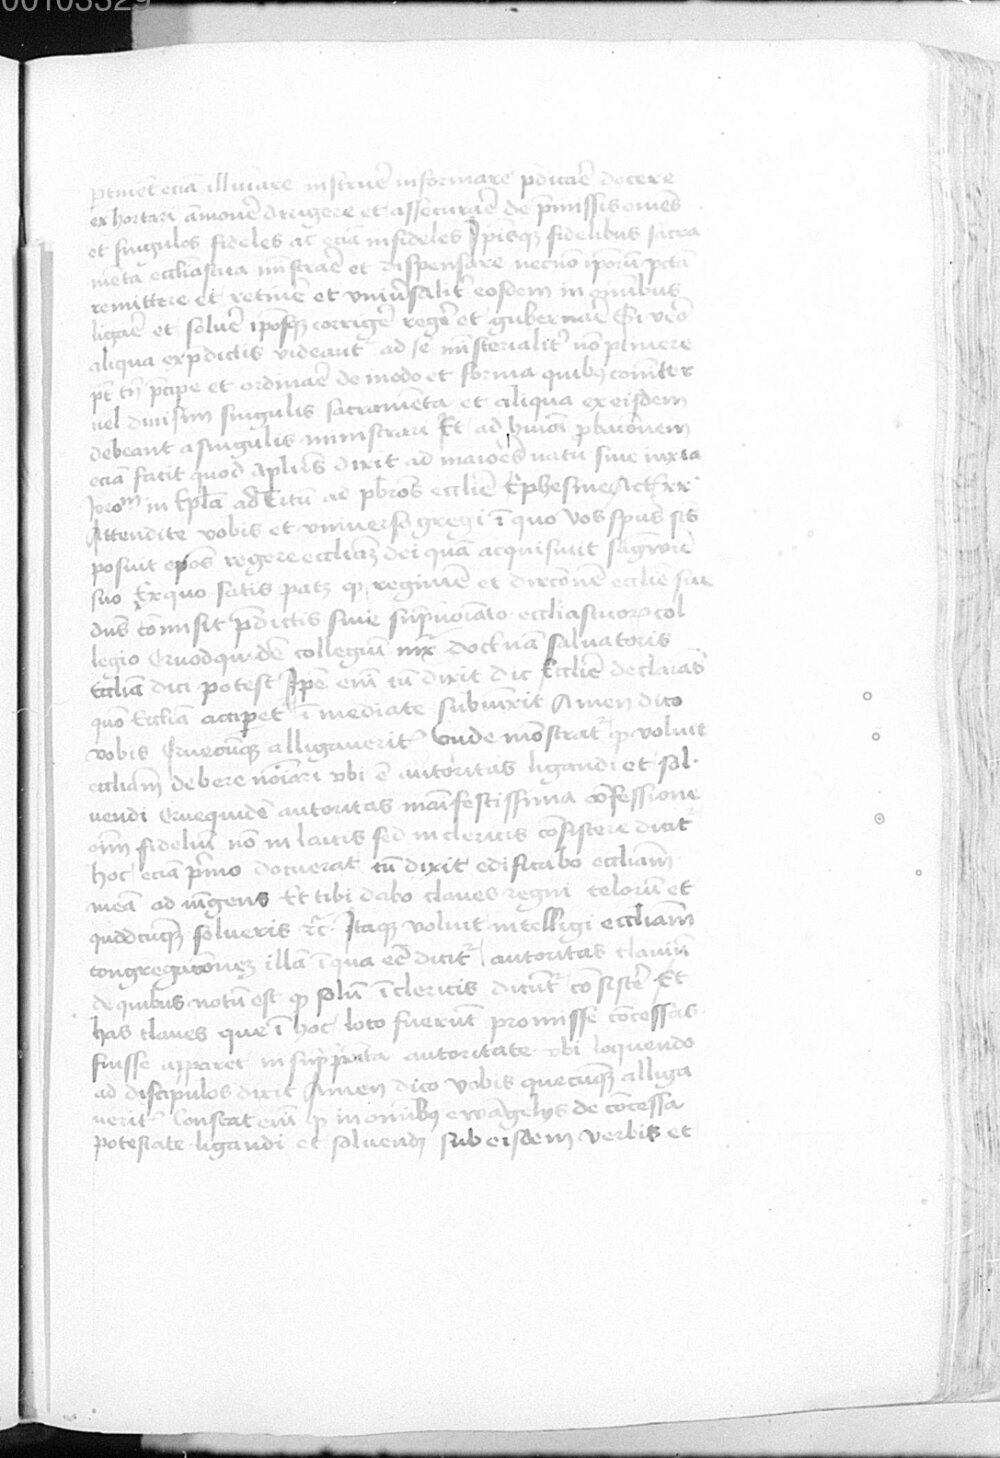 00103329
ptinet eciā illuīare instruē informare pdicāe docere
exhortari amonē dirigere et assecurāe de pmissis omēs
et singulos fideles ac eciā infideles Ipisqz fidelibus sacra
mēta eccliastica mīstrāe et dispensare necnō ipoꝝ pctā
remittere et retinē et vniūsalit eosdem in oīnibus
ligāe et soluē ipōsqz corrigē regē et gubernāe Si vēo
aliqua ex pdictis videant ad se mīsterialit nō ptinere
pt tn pcipe et ordināe de modo et forma quibus
uel diuisim singulis sacramēta et aliqua ex eisdem
debeant a singulis ministrari Et ad huiōi pbacōnem
eciā facit quod apłus dixit ad maiōes natū siue iuxta
Jeroᵐ in Epła ad Titū ad pbros ecclie Ephesine Act xx
Attendite vobis et vniuerso gregi ī quo vos spūs scs
posuit epōs regere eccliaz dei quā acquisiuit sāgwīe
suo Ex quo satis patz ꝙ regimē et direcōnē ecclie sue
dūs cōmisit pdictis siue supnoīato eccliasticoꝝ col
legio Quodquidē collegiū iux doctnā saluatoris
Eccliā dici potest Ipē enī cū dixit dic Ecclie declarās
quō Eccliā acciperet īmediate subiūxit Amen dico
vobis Quecūqz alligauerit Vnde mōstrat ꝙ voluit
eccliam debere noīari vbi ē autoritas ligandi et sol
uendi Quequidē autoritas manifestissima cōfessione
oīm fidelium nō in laicis sed in clericis cōsistere dicit
hoc eciā pmo docuerat cū dixit edificabo eccliam
meā adiūgens Et tibi dabo claues regni celoꝝ et
quodcūqz solueris ꝛc Itaqz voluit intelligi eccliam
congregacōnez illā ī qua eē dicit autoritas clauiū
de quibus notū est ꝙ solū ī clericis dicūt cōsistē Et
has claues que ī hoc loco fuerūt promisse cōcessas
fuisse apparet in suppōita autoritate vbi loquendo
ad discipulos dixit Amen dico vobis quecūqz alliga
uerit Constat enī ꝙ in omībus ewāgelijs de cōcessa
potestate ligandi et soluendi sub eisdem verbis et